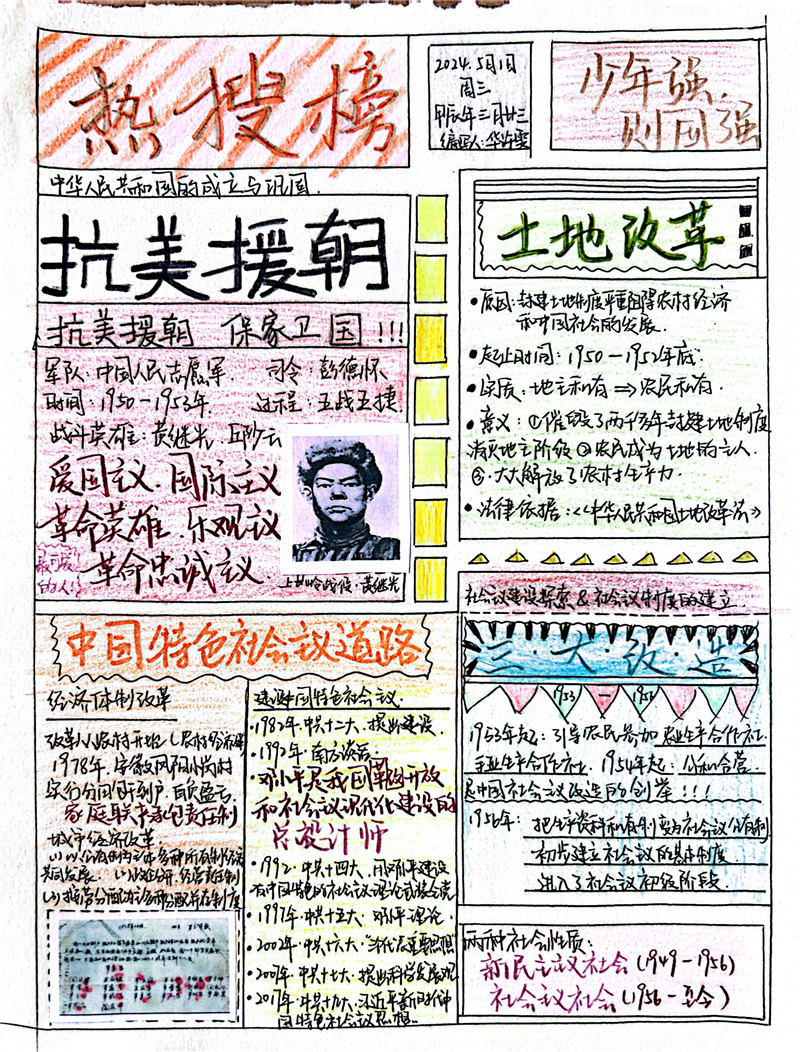 热搜榜
2024.5月1日
周三
甲辰年三月廿三
少年强,
则国强
中华人民共和国的成立与巩固.
抗美援朝
抗美援朝 保家卫国!!!
军队:中国人民志愿军. 司令:彭德怀
时间:1950-1953年. 过程:五战五捷.
战斗英雄:黄继光、邱少云
爱国主义.国际主义
革命英雄.乐观主义
革命忠诚主义.
最可爱
的人们
上甘岭战役·黄继光
土地改革
•原因:封建土地制度严重阻碍农村经济
和中国社会的发展.
•起止时间:1950-1952年底.
•实质:地主私有⇒农民私有.
•意义:①摧毁了两千多年封建土地制度
消灭地主阶级②农民成为土地的主人
③.大大解放了农村生产力.
•法律依据:<<中华人民共和国土地改革法>>
社会主义建设探索&社会主义制度的建立
三·大·改·造
1953-1956
1953年起:引导农民参加农业生产合作社.
手工业生产合作社.1954年起:公私合营.
是中国社会主义改造的创举!!!
1956年:把生产资料私有制变为社会主义公有制
初步建立社会主义的基本制度
进入了社会主义初级阶段.
两种社会性质:
新民主主义社会(1949-1956)
社会主义社会(1956-至今)
中国特色社会主义道路
经济体制改革
改革从农村开始
1978年,安徽凤阳小岗村
实行分田包产到户,自负盈亏.
家庭联产承包责任制
城市经济改革
共同发展.
建设中国特色社会主义.
•1982年.中共十二大.提出建设.
•1992年.南方谈话
•邓小平是我国改革开放
和社会主义现代化建设的
总设计师
•1992.中共十四大.用邓小平建设
有中国特色的社会主义理论武装全党
•1997年.中共十五大.邓小平理论.
•2002年.中共十六大."三个代表重要思想"
•2007年.中共十七大.提出科学发展观
•2017年.中共十九大.习近平新时代中
国特色社会主义思想..